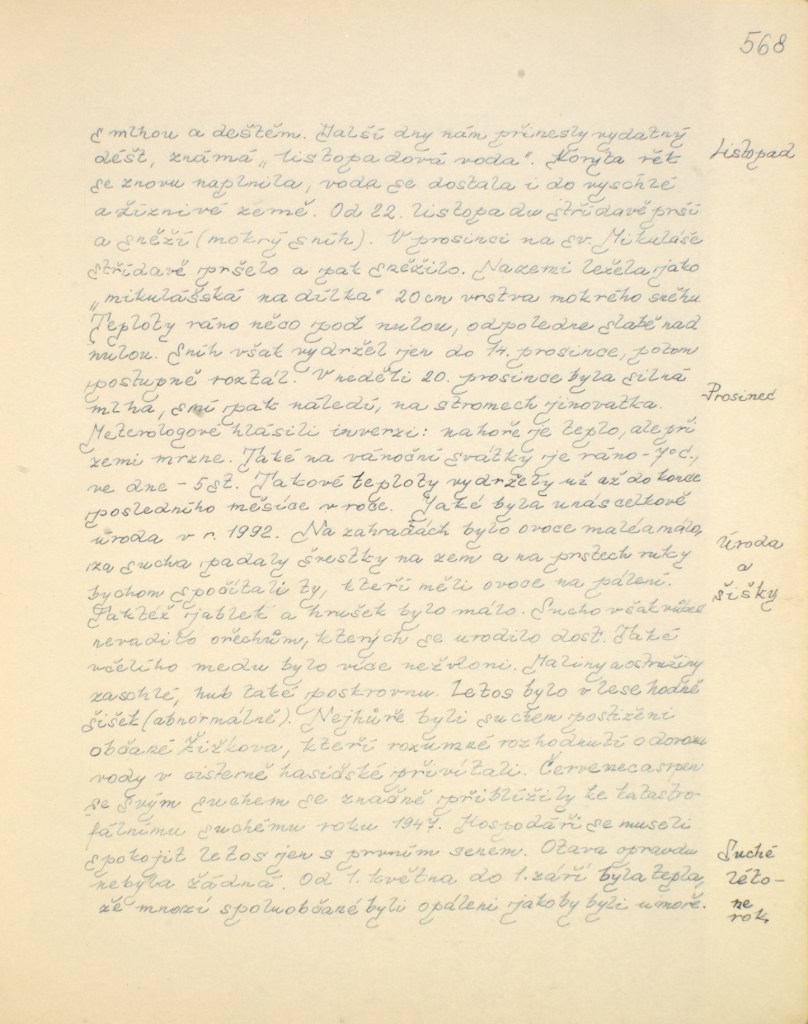 568
s mlhou a deštěm. Další dny nám přinesly vydatný
Listopad
déšť, známá „listopadová voda". Koryta řek
se znovu naplnila, voda se dostala i do vyschlé
a žíznivé země. Od 22. listopadu střídavě prší
a sněží (mokrý sníh). V prosinci na sv. Mikuláše
střídavě pršelo a pak sněžilo. Na zemi ležela jako
„mikulášská nadílka" 20 cm vrstva mokrého sněhu
Teploty ráno něco pod nulou, odpoledne slabě nad
nulou. Sníh však vydržel jen do 14. prosince, potom
postupně roztál. V neděli 20. prosince byla silná
Prosinec
mlha, pak náledí, na stromech jinovatka.
Meterologové hlásili inverzi: nahoře je teplo, ale při
zemi mrzne. Také na vánoční svátky je ráno -7°C.,
ve dne - 5 st. Takové teploty vydržely už až do konce
posledního měsíce v roce. Jaké byla u nás celkově
úroda v r. 1992. Na zahradách bylo ovoce malé a málo,
Úroda
za sucha padaly švestky na zem a na prstech ruky
a
bychom spočítali ty, kteří měli ovoce na pálení.
šišky
Taktéž jablek a hrušek bylo málo. Sucho však vůbec
nevadilo ořechům, kterých se urodilo dost. Také
včelího medu bylo více než vloni. Maliny a ostružiny
zaschlé, hub také poskrovnu. Letos bylo v lese hodně
šišek (abnormálně). Nejhůře byli suchem postiženi
občané Žižkova, kteří rozumné rozhodnutí o dovozu
vody v cisterně hasičské přivítali. Červenec a srpen
se svým suchem se značně přiblížily ke katastro-
fálnímu suchému roku 1947. Hospodáři se museli
spokojit letos jen s prvním senem. Otava opravdu
Suché
nebyla žádná. Od 1. května do 1. září byla tepla,
léto -
že mnozí spoluobčané byli opáleni jakoby byli u moře.
ne
rok.